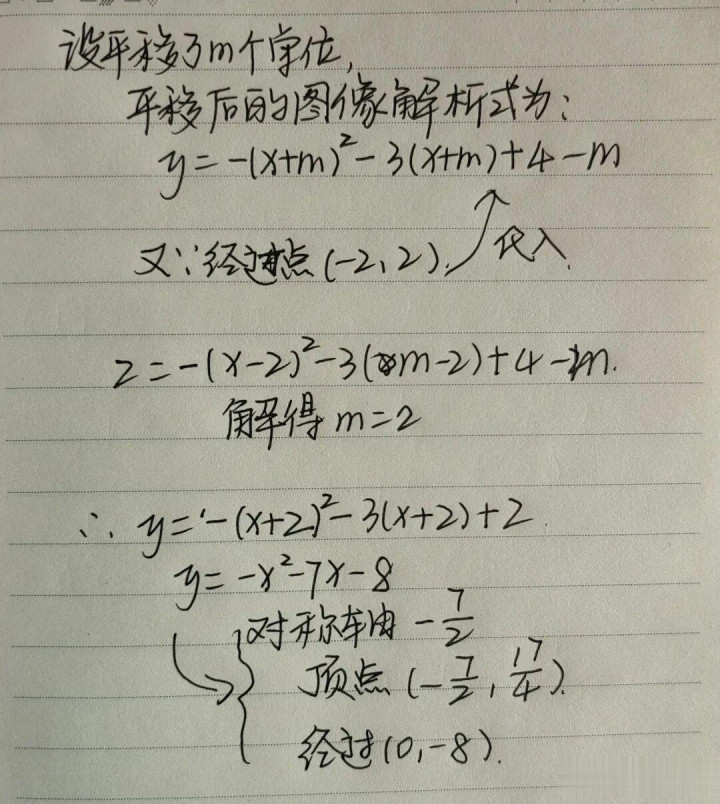 设平移了m个单位,
平移后的图像解析式为:
y=-(x+m)²-3(x+m)+4-m
又∵经过点(-2,2). 代入.
2=-(x-2)²-3(m-2)+4-m.
解得m=2
∴ y=-(x+2)²-3(x+2)+2
y=-x²-7x-8
对称轴由 -7/2
顶点(-7/2,17/4).
经过(0,-8).